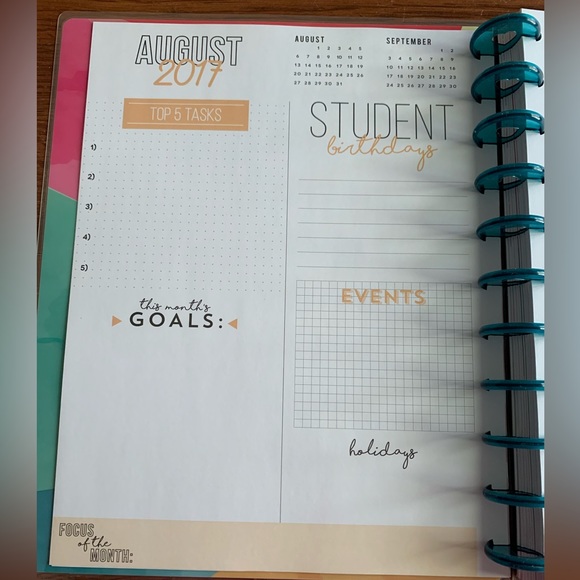 AUGUST
2017
AUGUST
1 2 3 4 5
6 7 8 9 10 11 12
13 14 15 16 17 18 19
20 21 22 23 24 25 26
27 28 29 30 31
SEPTEMBER
1 2
3 4 5 6 7 8 9
10 11 12 13 14 15 16
17 18 19 20 21 22 23
24 25 26 27 28 29 30
TOP 5 TASKS
1)
2)
3)
4)
5)
this month's
GOALS:
STUDENT
birthdays
EVENTS
holidays
FOCUS
of the
MONTH: